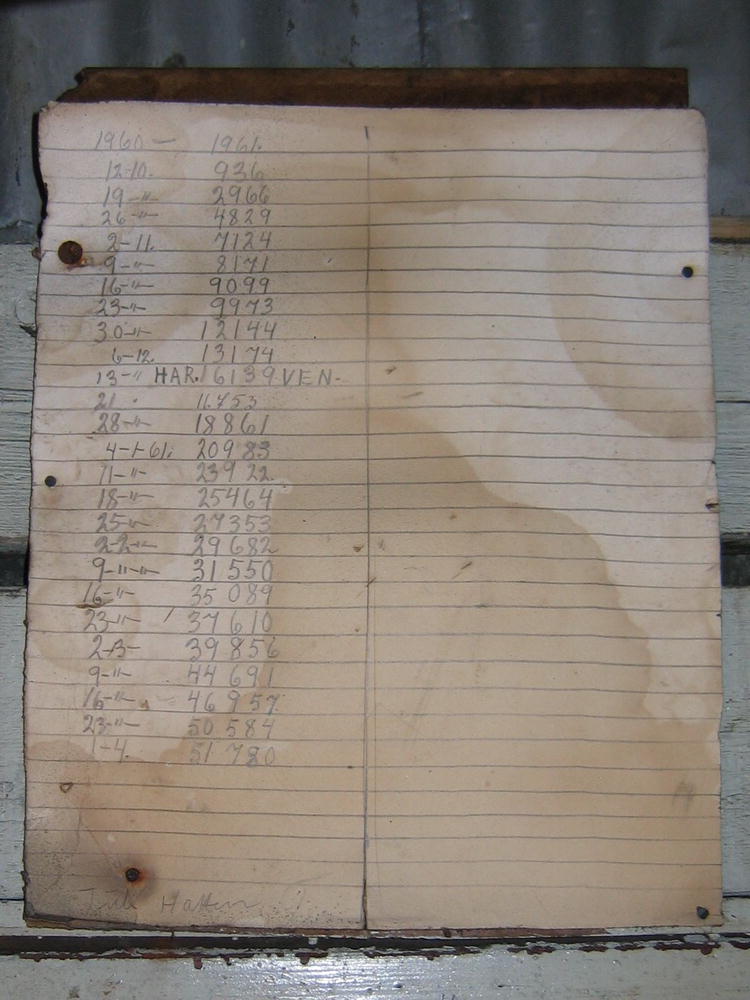 1960 — 1961.
12-10. 936
19 -"- 2966
26 -"- 4829
2-11. 7124
9 -"- 8171
16 -"- 9099
23 -"- 9973
30 -"- 12144
6-12. 13174
13 -" HAR. 16139 VEN-
21 " 16753
28 -"- 18861
4-1-61. 20983
11 -"- 23922
18 -"- 25464
25 -"- 27353
2-2 -"- 29682
9 -"-"- 31550
16 -"- 35089
23 -"- 37610
2-3- 39856
9 -"- 44691
16 -"- 46957
23 -"- 50584
1-4. 51780